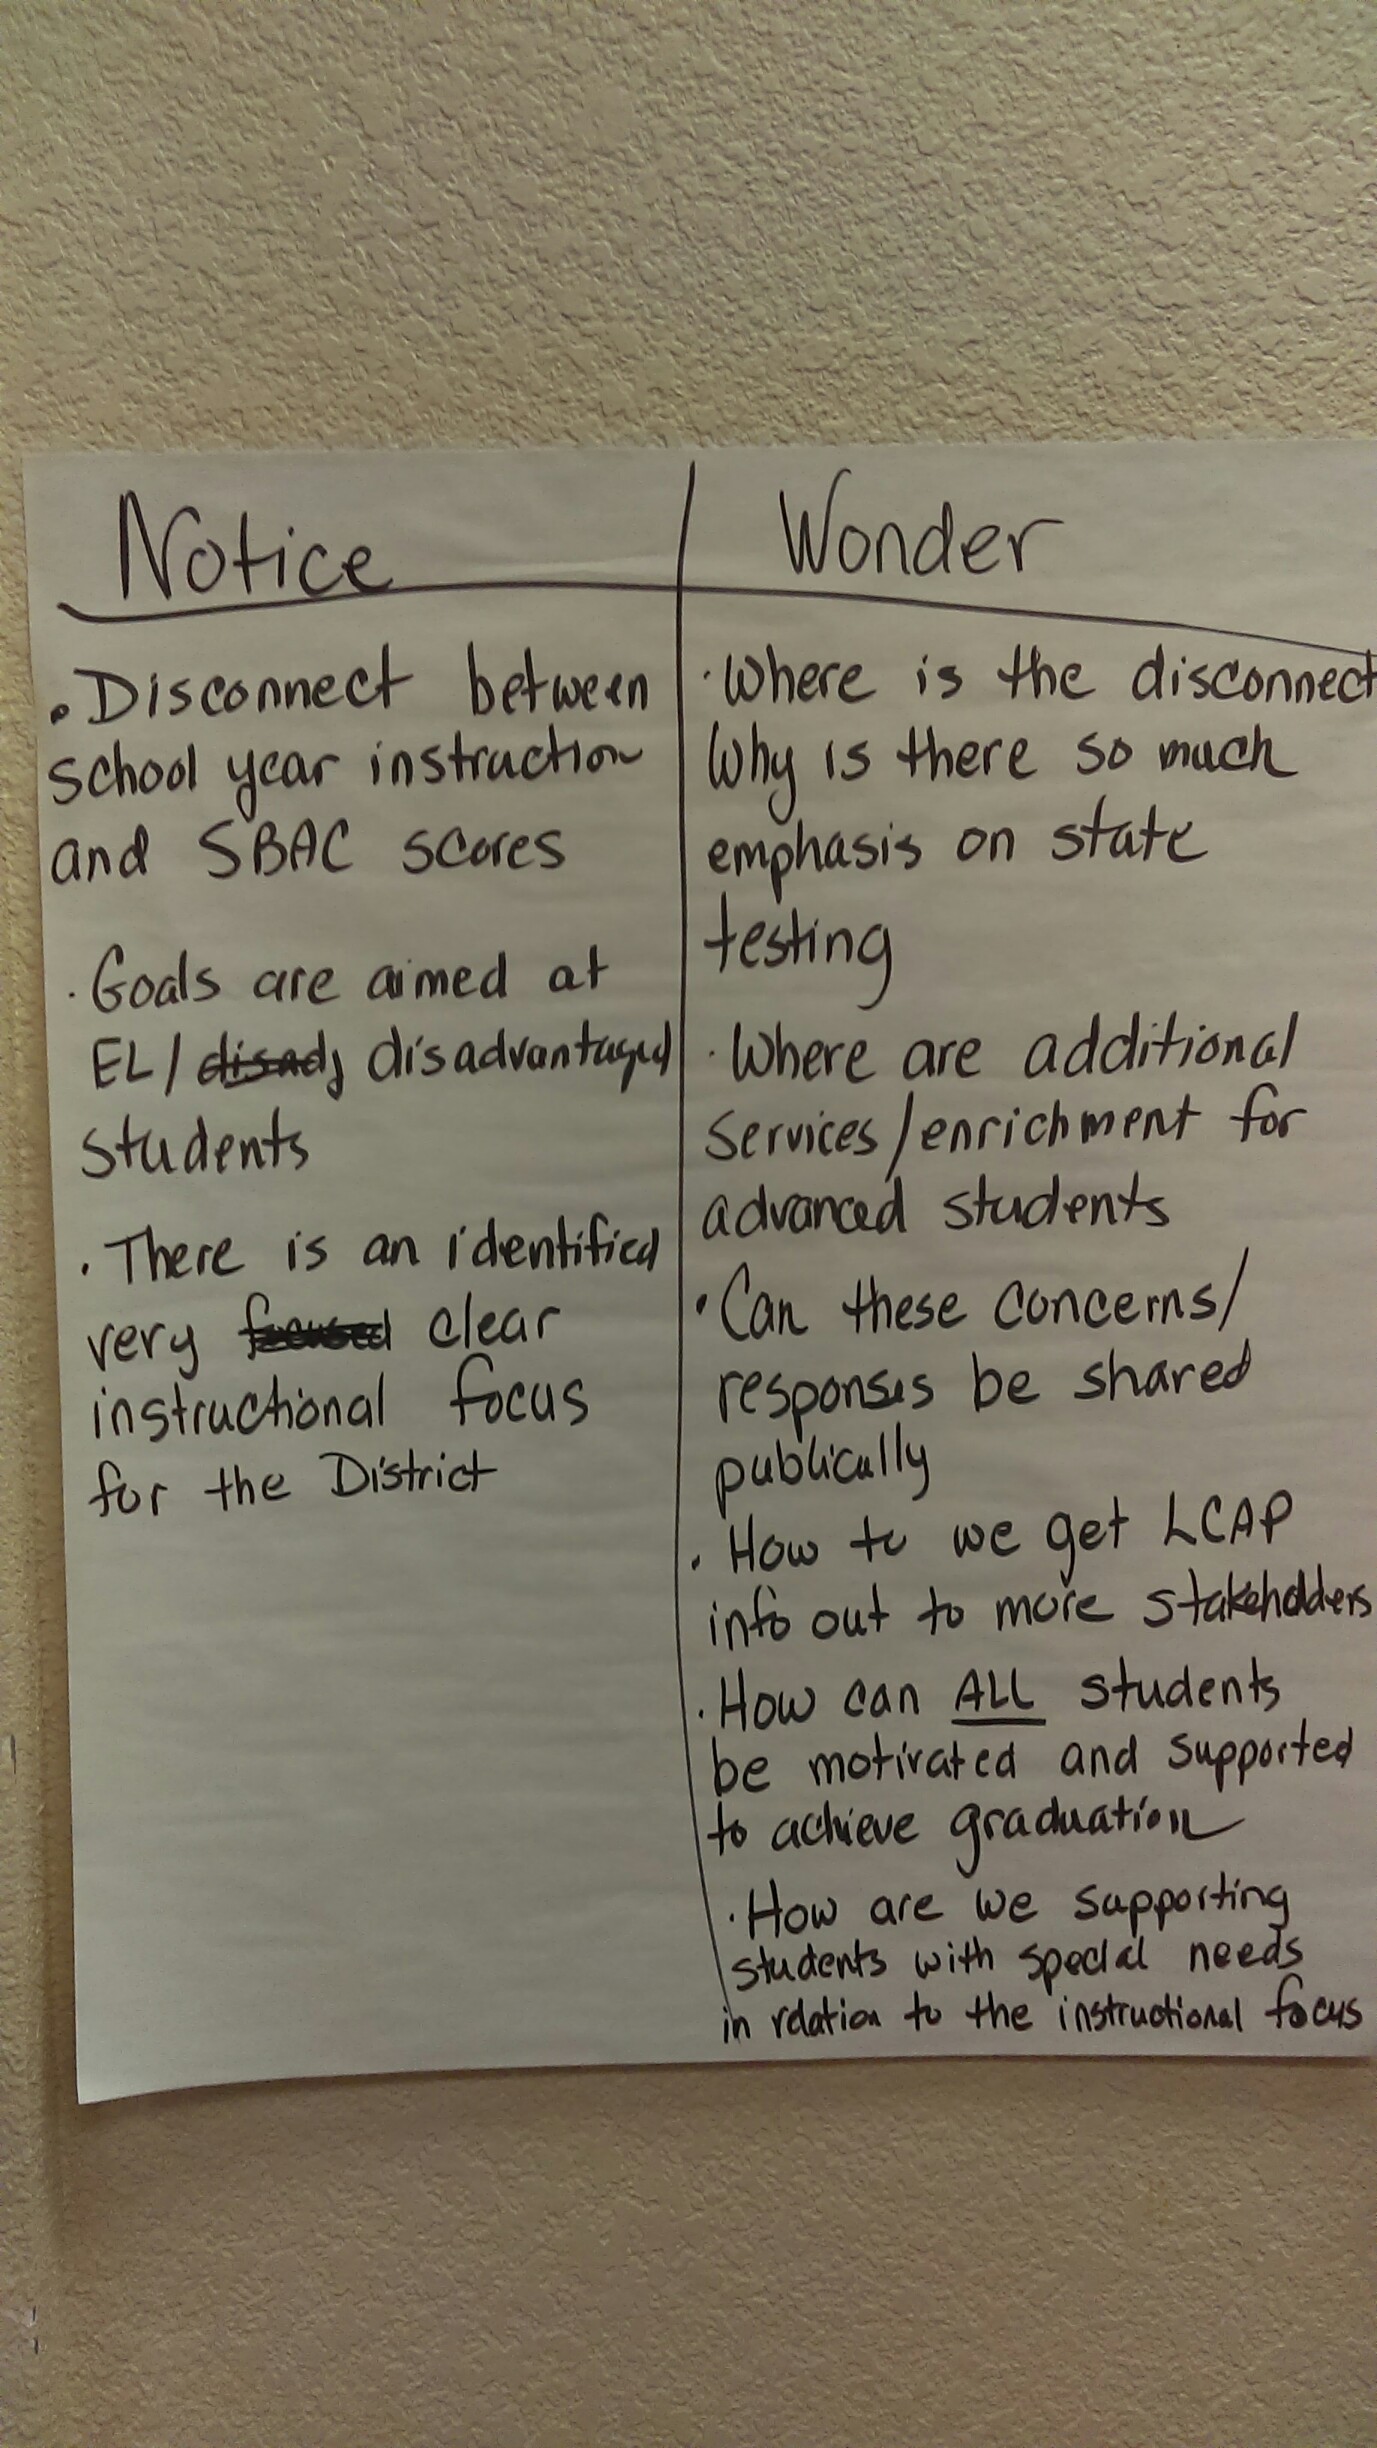 Notice
• Disconnect between
school year instruction
and SBAC scores
· Goals are aimed at
EL/ disadj disadvantaged
students
· There is an identified
very focused clear
instructional focus
for the District
Wonder
· Where is the disconnect
Why is there so much
emphasis on state
testing
· Where are additional
Services/enrichment for
advanced students
· Can these concerns/
responses be shared
publically
· How to we get LCAP
info out to more stakeholders
· How can ALL students
be motivated and supported
to achieve graduation
· How are we supporting
students with special needs
in relation to the instructional focus